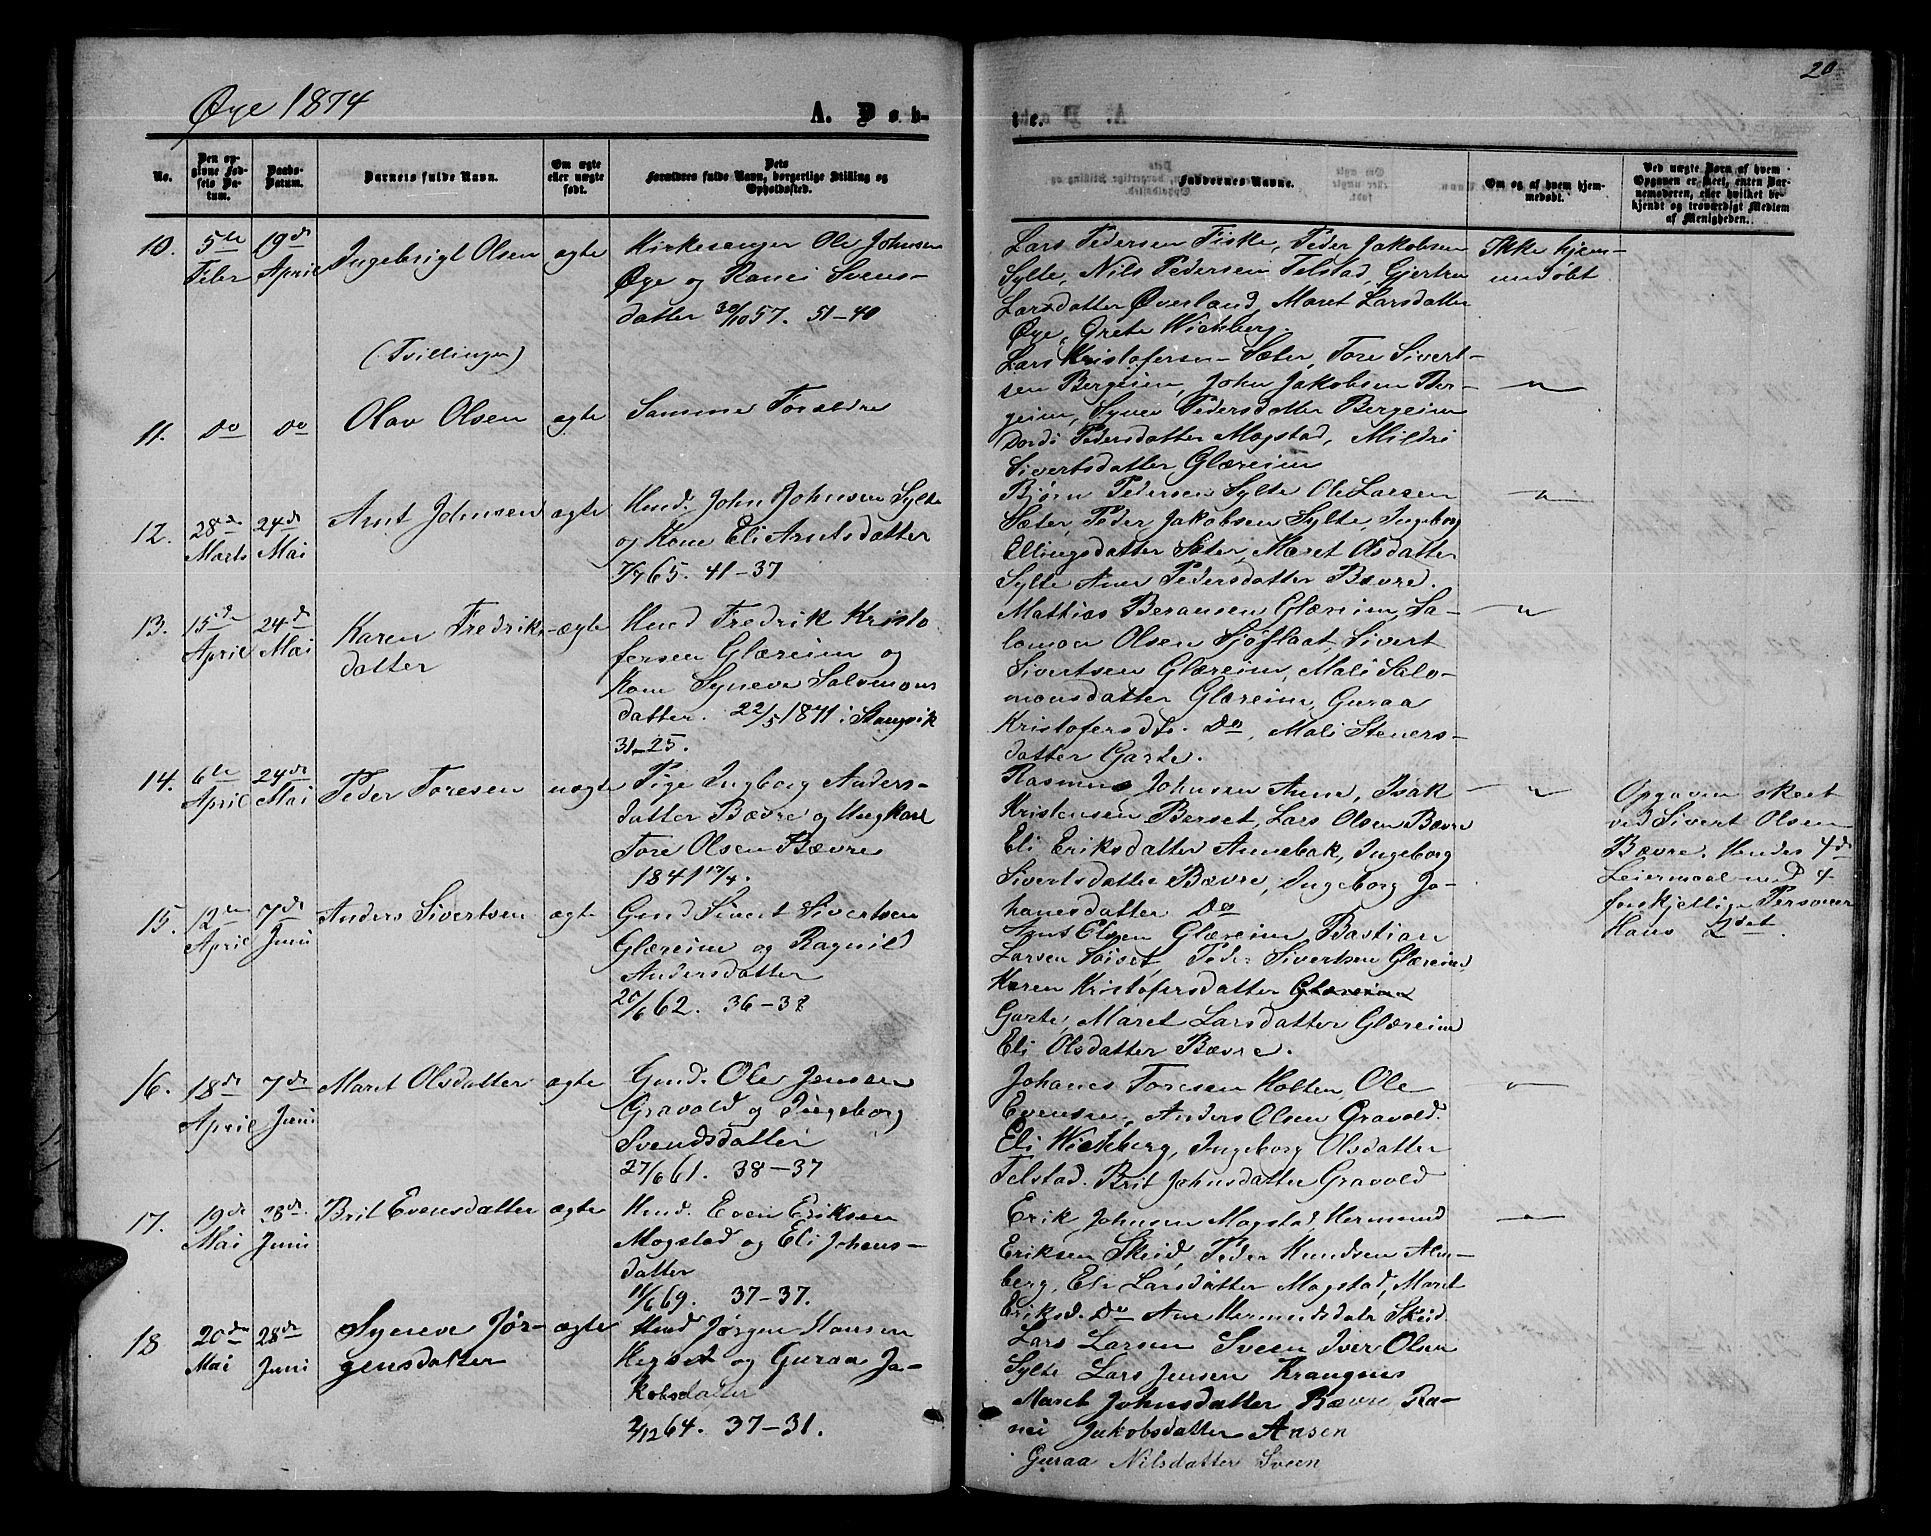 Øye 1874
A. Dob-
te.
20
No.
Den opgivne Fødsels Datum.
Daabs-Datum.
Barnets fulde Navn.
Om ægte eller uægte født.
Dets Forældres fulde Navn, borgerlige Stilling og Opholdssted.
Faddernes Navne.
Om og af hvem hjemmedøbt.
Ved uægte Børn af hvem Opgaven er skeet, enten Barnemoderen, eller hvilket bekjendt og troværdigt Medlem af Menigheden.
10. 5te Febr 19de April Ingebrigt Olsen ægte
Kirkesanger Ole Johnsen
Øye og Ranei Svens-
datter 30/10 57. 51-40
(Tvillinger)
Lars Pedersen Fiske, Peder Jakobsen
Sylte, Nils Pedersen Telstad, Gjertru
Larsdatter Øverland, Maret Larsdatter
Øye, Grete Wichberg.
Ikke hjem-
medøbt
11. do do Olav Olsen ægte
Samme Forældre
Lars Kristofersen Sæter, Tore Sivert-
sen Bergeim, John Jakobsen Ber-
geim, Synev Pedersdatter Bergeim
Dordi Pedersdatter Mogstad, Mildri
Sivertsdatter Glæreim
12. 28de Marts 24de Mai Arnt Johnsen ægte
Hmd. John Johnsen Sylte
og Kone Eli Arntsdatter
7/7 65. 41-37
Bjørn Pedersen Sylte Ole Larsen
Sæter, Peder Jakobsen Sylte, Ingeborg
Ellingsdatter Sæter, Maret Olsdatter
Sylte Ane Pedersdatter Bævre.
13. 15de April 24de Mai Karen Fredriks-
datter ægte
Hmd Fredrik Kristo
fersen Glæreim og
Kone Syneve Salomons
datter. 22/5 1871 i Stangvik
31-25.
Mathias Beransen Glæreim, Sa-
lomon Olsen Sjøflaat, Sivert
Sivertsen Glæreim, Mali Salo-
monsdatter Glæreim, Guraa
Kristofersdt. Do, Mali Steners-
datter Garte.
14. 6te April 24de Mai Peder Toresen uægte
Pige Ingborg Anders-
datter Bævre og Ungkarl
Tore Olsen Bævre
1841 17/4.
Rasmus Johnsen Aune, Isak
Kristensen Berset, Lars Olsen Bævre
Eli Eriksdatter Annebak, Ingeborg
Sivertsdatter Bævre, Ingeborg Jo-
hanesdatter Do
Opgaven skeet
ved Sivert Olsen
Bævre. Hendes 4de
Leiermaal med 4
forskjellige Personer
Hans 2det.
15. 12te April 7de Juni Anders Sivertsen ægte
Gmd Sivert Sivertsen
Glæreim og Ragnild
Andersdatter
20/6 62. 36-38
Arnt Elsen Glæreim Bastian
Larsen Søiset, Peder Sivertsen Glæreim,
Karen Kristofersdatter Glæreim
Garte, Maret Larsdatter Glæreim
Eli Olsdatter Bævre.
16. 18de April 7de Juni Maret Olsdatter ægte
Gmd. Ole Jensen
Gravold og Ingeborg
Svendsdatter
27/6 61. 38-37
Johanes Toresen Holten, Ole
Evensen, Anders Olsen Gravold.
Eli Wichberg, Ingeborg Olsdatter
Telstad. Brit Johnsdatter Gravold
17. 19de Mai 28de Juni Brit Evensdatter ægte
Hmd. Even Eriksen
Mogstad og Eli Johans-
datter
11/6 69. 37-37.
Erik Johnsen Mogstad, Hermund
Eriksen Skeid, Peder Knudsen Alm-
berg, Eli Larsdatter Mogstad, Maret
Eriksd. Do Ane Hermundsdatr Skeid
18 20de Mai 28de Juni Syneve Jør-
gensdatter ægte
Hmd Jørgen Hansen
Hegset og Guraa Ja-
kobsdatter
2/12 64. 37-31.
Lars Larsen Sveen Iver Olsen
Sylte Lars Jensen Krangnes
Maret Johnsdatter Bævre Ra-
nei Jakobsdatter Aasen
Guraa Nilsdatter Sveen